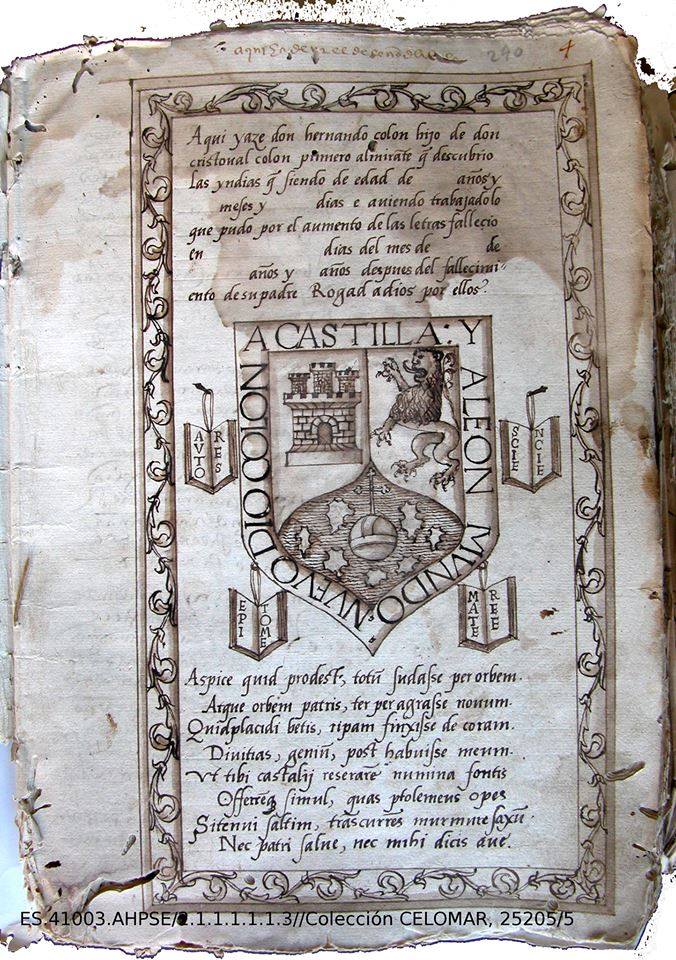 240
Aqui yaze don hernando colon hijo de don
cristoual colon primero almirãte q̃ descubrio
las yndias q̃ siendo de edad de años y
meses y dias e auiendo trabajado lo
que pudo por el aumento de las letras fallecio
en dias del mes de de
años y años despues del fallecimi-
ento de su padre Rogad a dios por ellos.
A CASTILLA: Y
ALEON
MVNDO
NVEVO DIO COLON
AVTO RES
SCIE NCIE
EPI TOME
MATE REE
Aspice quid prodest, totũ sudasse per orbem.
Atque orbem patris, ter peragrasse nouum.
Quid placidi betis, ripam finxisse decoram.
Diuitias, geniũ, post habuisse meum.
Vt tibi castalij reserarẽ numina fontis
Offerẽq simul, quas ptolemeus opes
Si tenui saltim, trãscurres murmure saxũ.
Nec patri salue, nec mihi dicis aue.
ES.41003.AHPSE/2.1.1.1.1.1.3//Colección CELOMAR, 25205/5